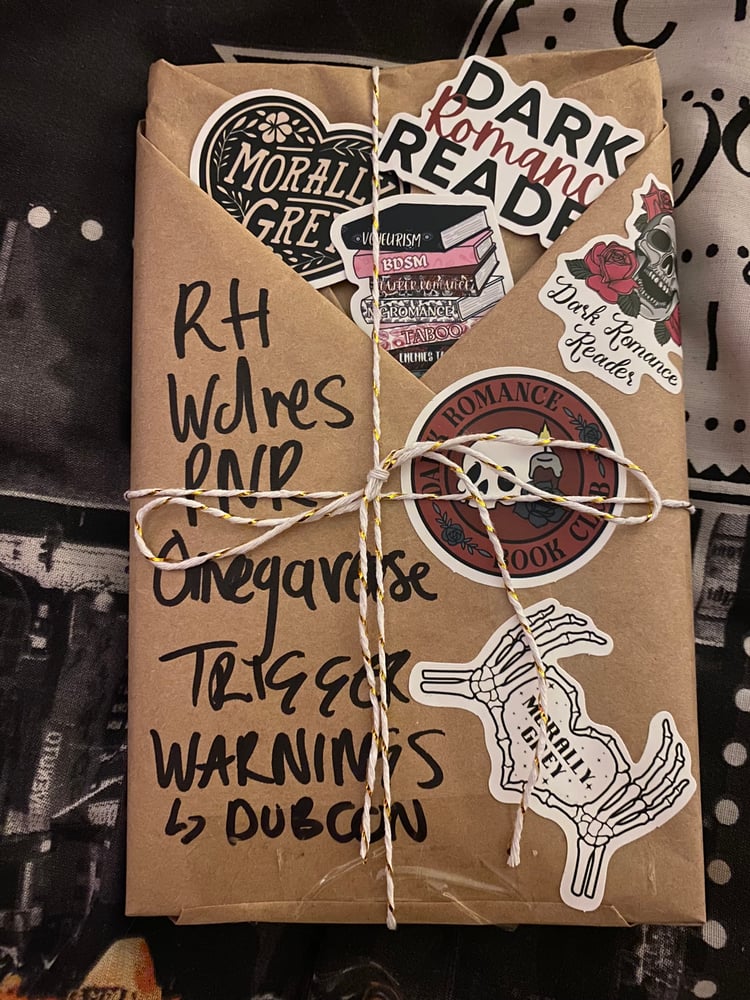 MORALLY
GREY
DARK
Romance
READER
VOYEURISM
BDSM
ROMANCE
ROMANCE
TABOO
ENEMIES TO
Dark Romance
Reader
RH
Wolves
PNR
Omegaverse
TRIGGER
WARNINGS
↳ DUBCON
DARK ROMANCE
BOOK CLUB
MORALLY
GREY